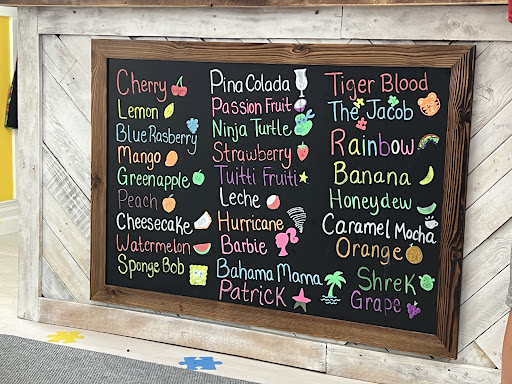 Cherry
Lemon
Blue Rasberry
Mango
Greenapple
Peach
Cheesecake
Watermelon
Sponge Bob
Pina Colada
Passion Fruit
Ninja Turtle
Strawberry
Tuitti Fruiti
Leche
Hurricane
Barbie
Bahama Mama
Patrick
Tiger Blood
The Jacob
Rainbow
Banana
Honeydew
Caramel Mocha
Orange
Shrek
Grape